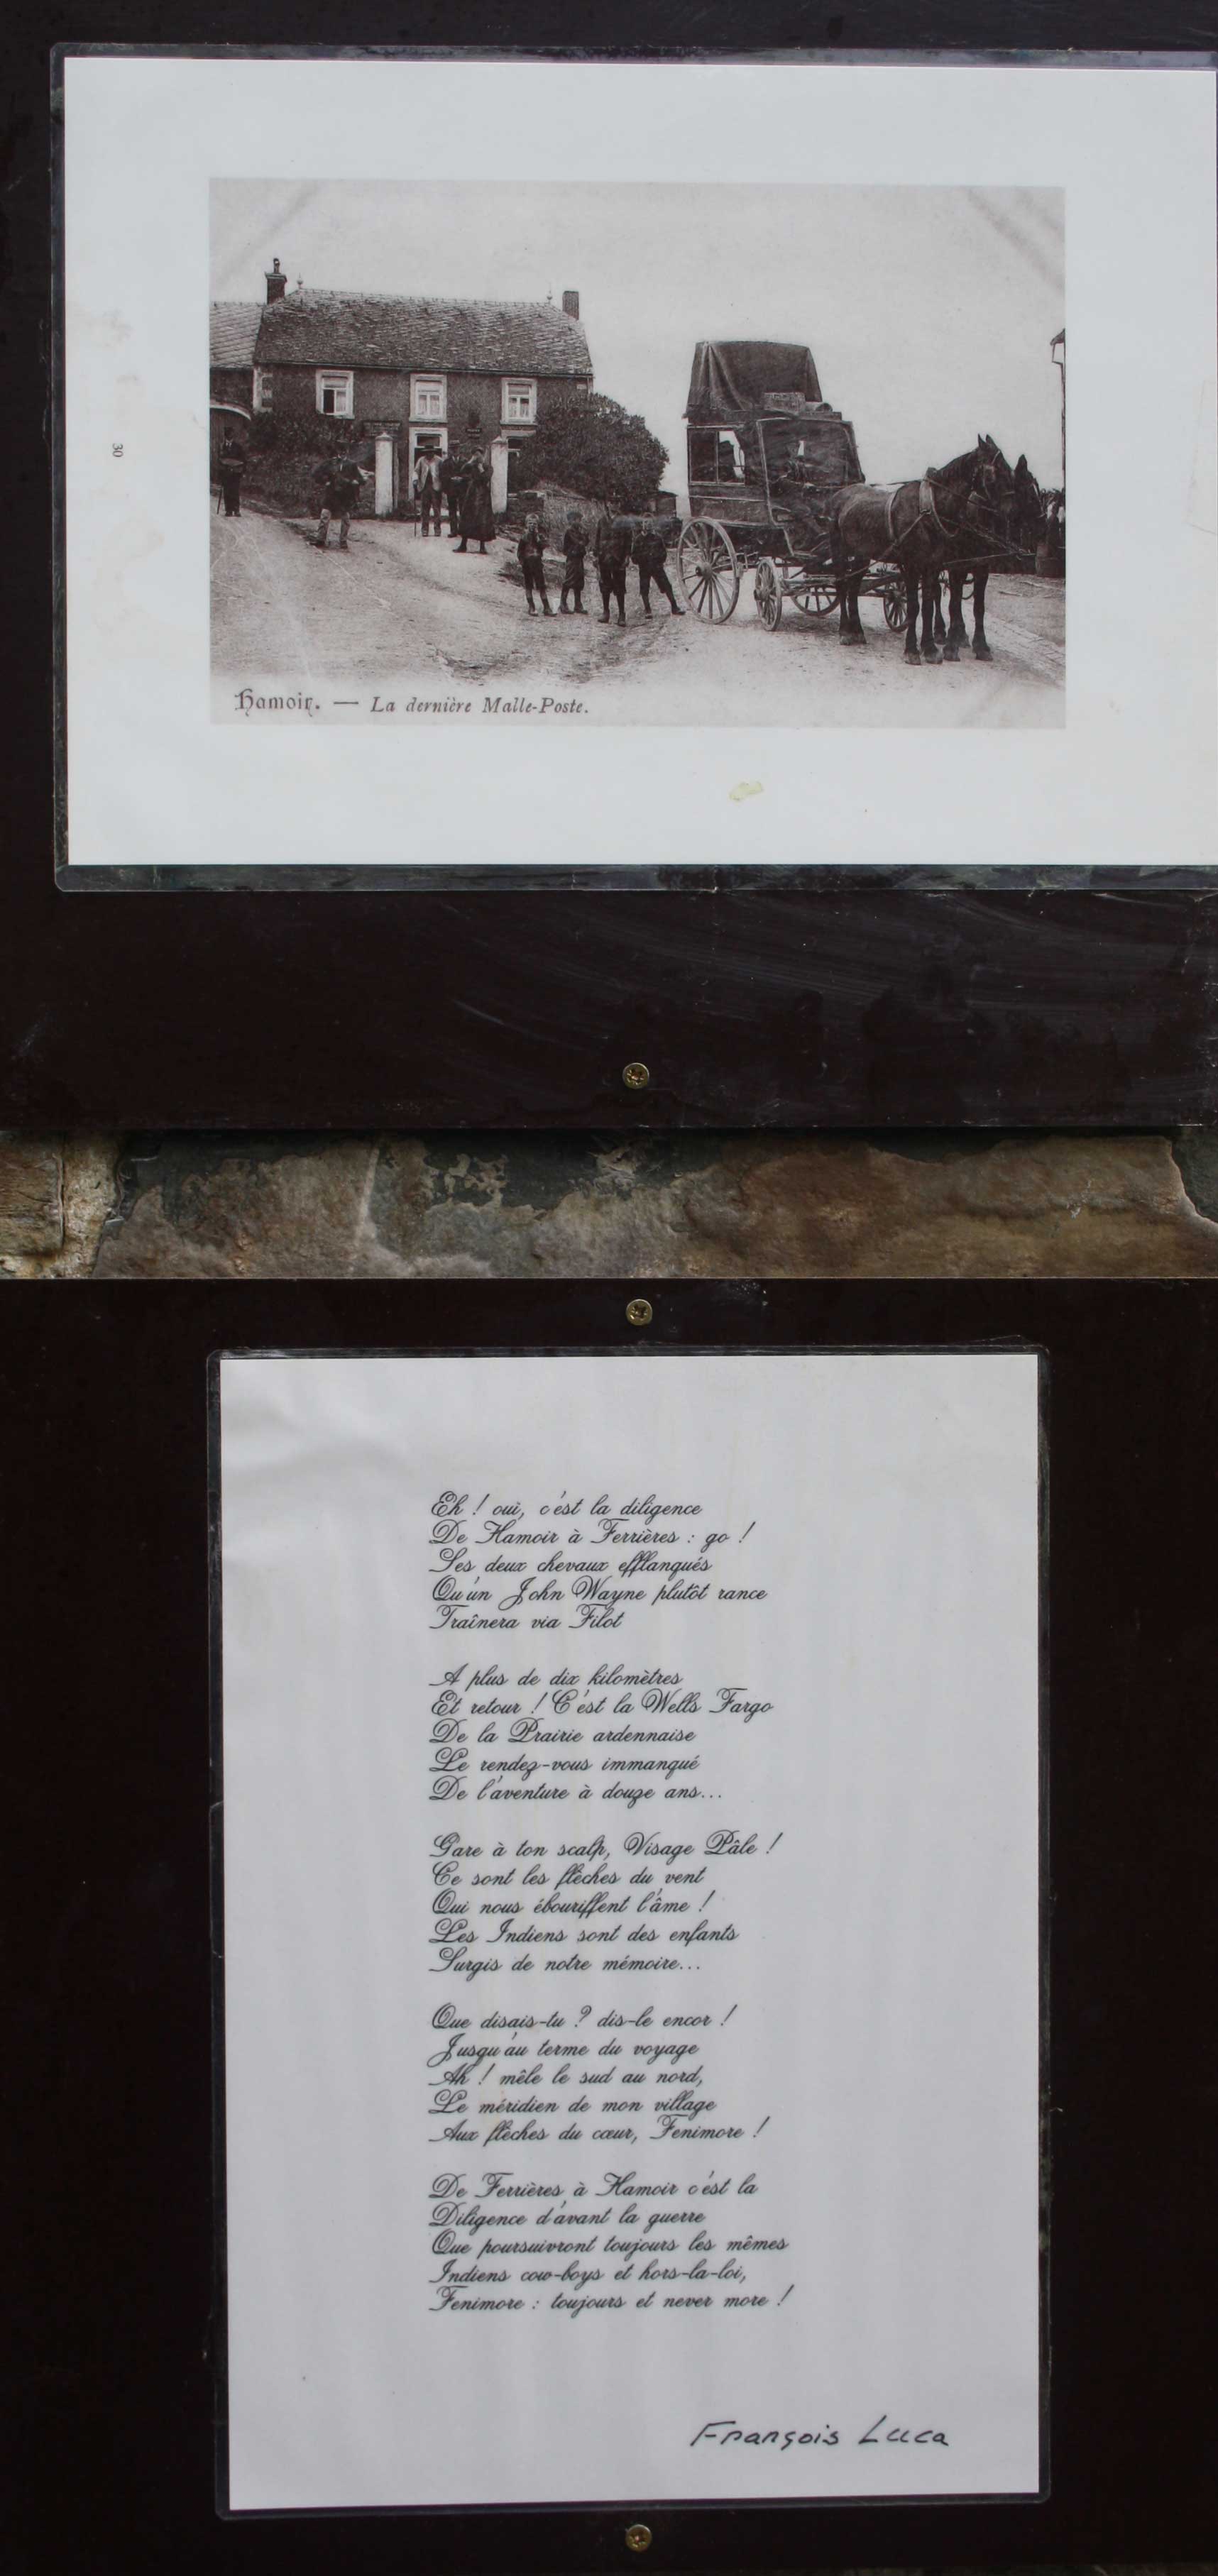 30
Hamoir. — La dernière Malle-Poste.
Eh ! oui, c'est la diligence
De Hamoir à Ferrières : go !
Ses deux chevaux efflanqués
Qu'un John Wayne plutôt rance
Traînera via Filot
A plus de dix kilomètres
Et retour ! C'est la Wells Fargo
De la Prairie ardennaise
Le rendez-vous immanqué
De l'aventure à douze ans...
Gare à ton scalp, Visage Pâle !
Ce sont les flèches du vent
Qui nous ébouriffent l'âme !
Les Indiens sont des enfants
Surgis de notre mémoire...
Que disais-tu ? dis-le encor !
Jusqu'au terme du voyage
Ah ! mêle le sud au nord,
Le méridien de mon village
Aux flèches du cœur, Fenimore !
De Ferrières à Hamoir c'est la
Diligence d'avant la guerre
Que poursuivront toujours les mêmes
Indiens cow-boys et hors-la-loi,
Fenimore : toujours et never more !
François Luca